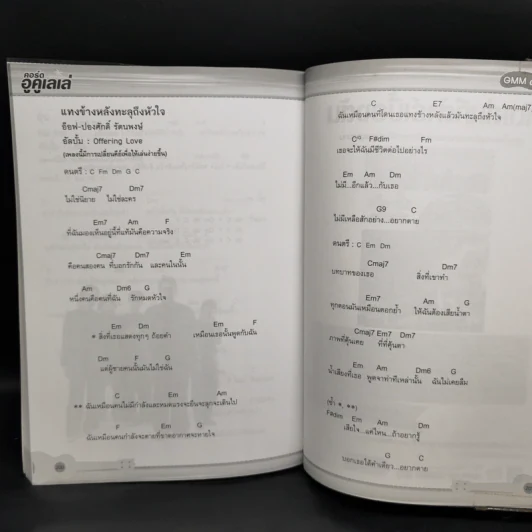 คอร์ด
อูคูเลเล่
แทงข้างหลังทะลุถึงหัวใจ
อ๊อฟ-ปองศักดิ์ รัตนพงษ์
อัลบั้ม : Offering Love
(เพลงนี้มีการเปลี่ยนคีย์เพื่อให้เล่นง่ายขึ้น)
ดนตรี : C Fm Dm G C
Cmaj7 Dm7
ไม่ใช่นิยาย ไม่ใช่ละคร
Em7 Am F
ที่ฉันมองเห็นอยู่นี้ที่แท้มันคือความจริง
Cmaj7 Dm7 Em
คือคนสองคน ที่บอกรักกัน และคนในนั้น
Am Dm6 G
หนึ่งคนคือคนที่ฉัน รักหมดหัวใจ
Em Dm Em F
* สิ่งที่เธอแสดงทุกๆ ถ้อยคำ เหมือนเธอนั้นพูดกับฉัน
Dm F G
แต่ผู้ชายคนนั้นมันไม่ใช่ฉัน
C Em Am
** ฉันเหมือนคนไม่มีกำลังและหมดแรงจะยืนจะลุกจะเดินไป
F Em G
ฉันเหมือนคนกำลังจะตายที่ขาดอากาศจะหายใจ
GMM
C E7 Am Am(maj7)
ฉันเหมือนคนที่โดนเธอแทงข้างหลังแล้วมันทะลุถึงหัวใจ
F#dim Fm
เธอจะให้ฉันมีชีวิตต่อไปอย่างไร
Em Am Dm
ไม่มี...อีกแล้ว...กับเธอ
G9 C
ไม่มีเหลือสักอย่าง...อยากตาย
ดนตรี : C Em Dm
Cmaj7 Dm7
บทบาทของเธอ สิ่งที่เขาทำ
Em7 Am G
ทุกตอนมันเหมือนตอกย้ำ ให้ฉันต้องเสียน้ำตา
Cmaj7 Em7 Dm7
ภาพที่คุ้นเคย ที่ที่คุ้นตา
Em Am Dm6 G
น้ำเสียงที่เธอ พูดจาท่าทีเหล่านั้น ฉันไม่เคยลืม
(ซ้ำ *, **)
F#dim Em Am Dm
เสียใจ...แค่ไหน...ถ้าอยากรู้
G C
บอกเธอได้คำเดียว...อยากตาย